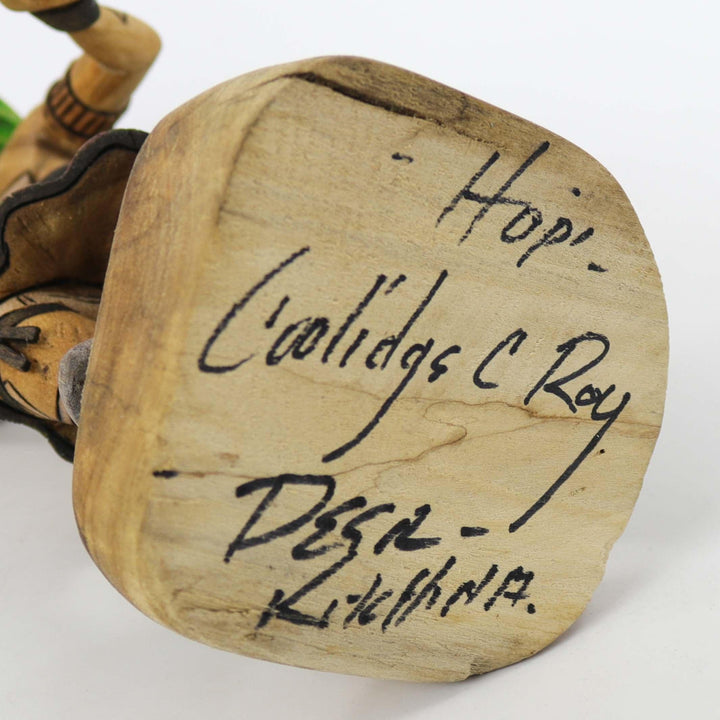 - Hopi -
Coolidge C Roy
- DEER -
KAtCHiNA.